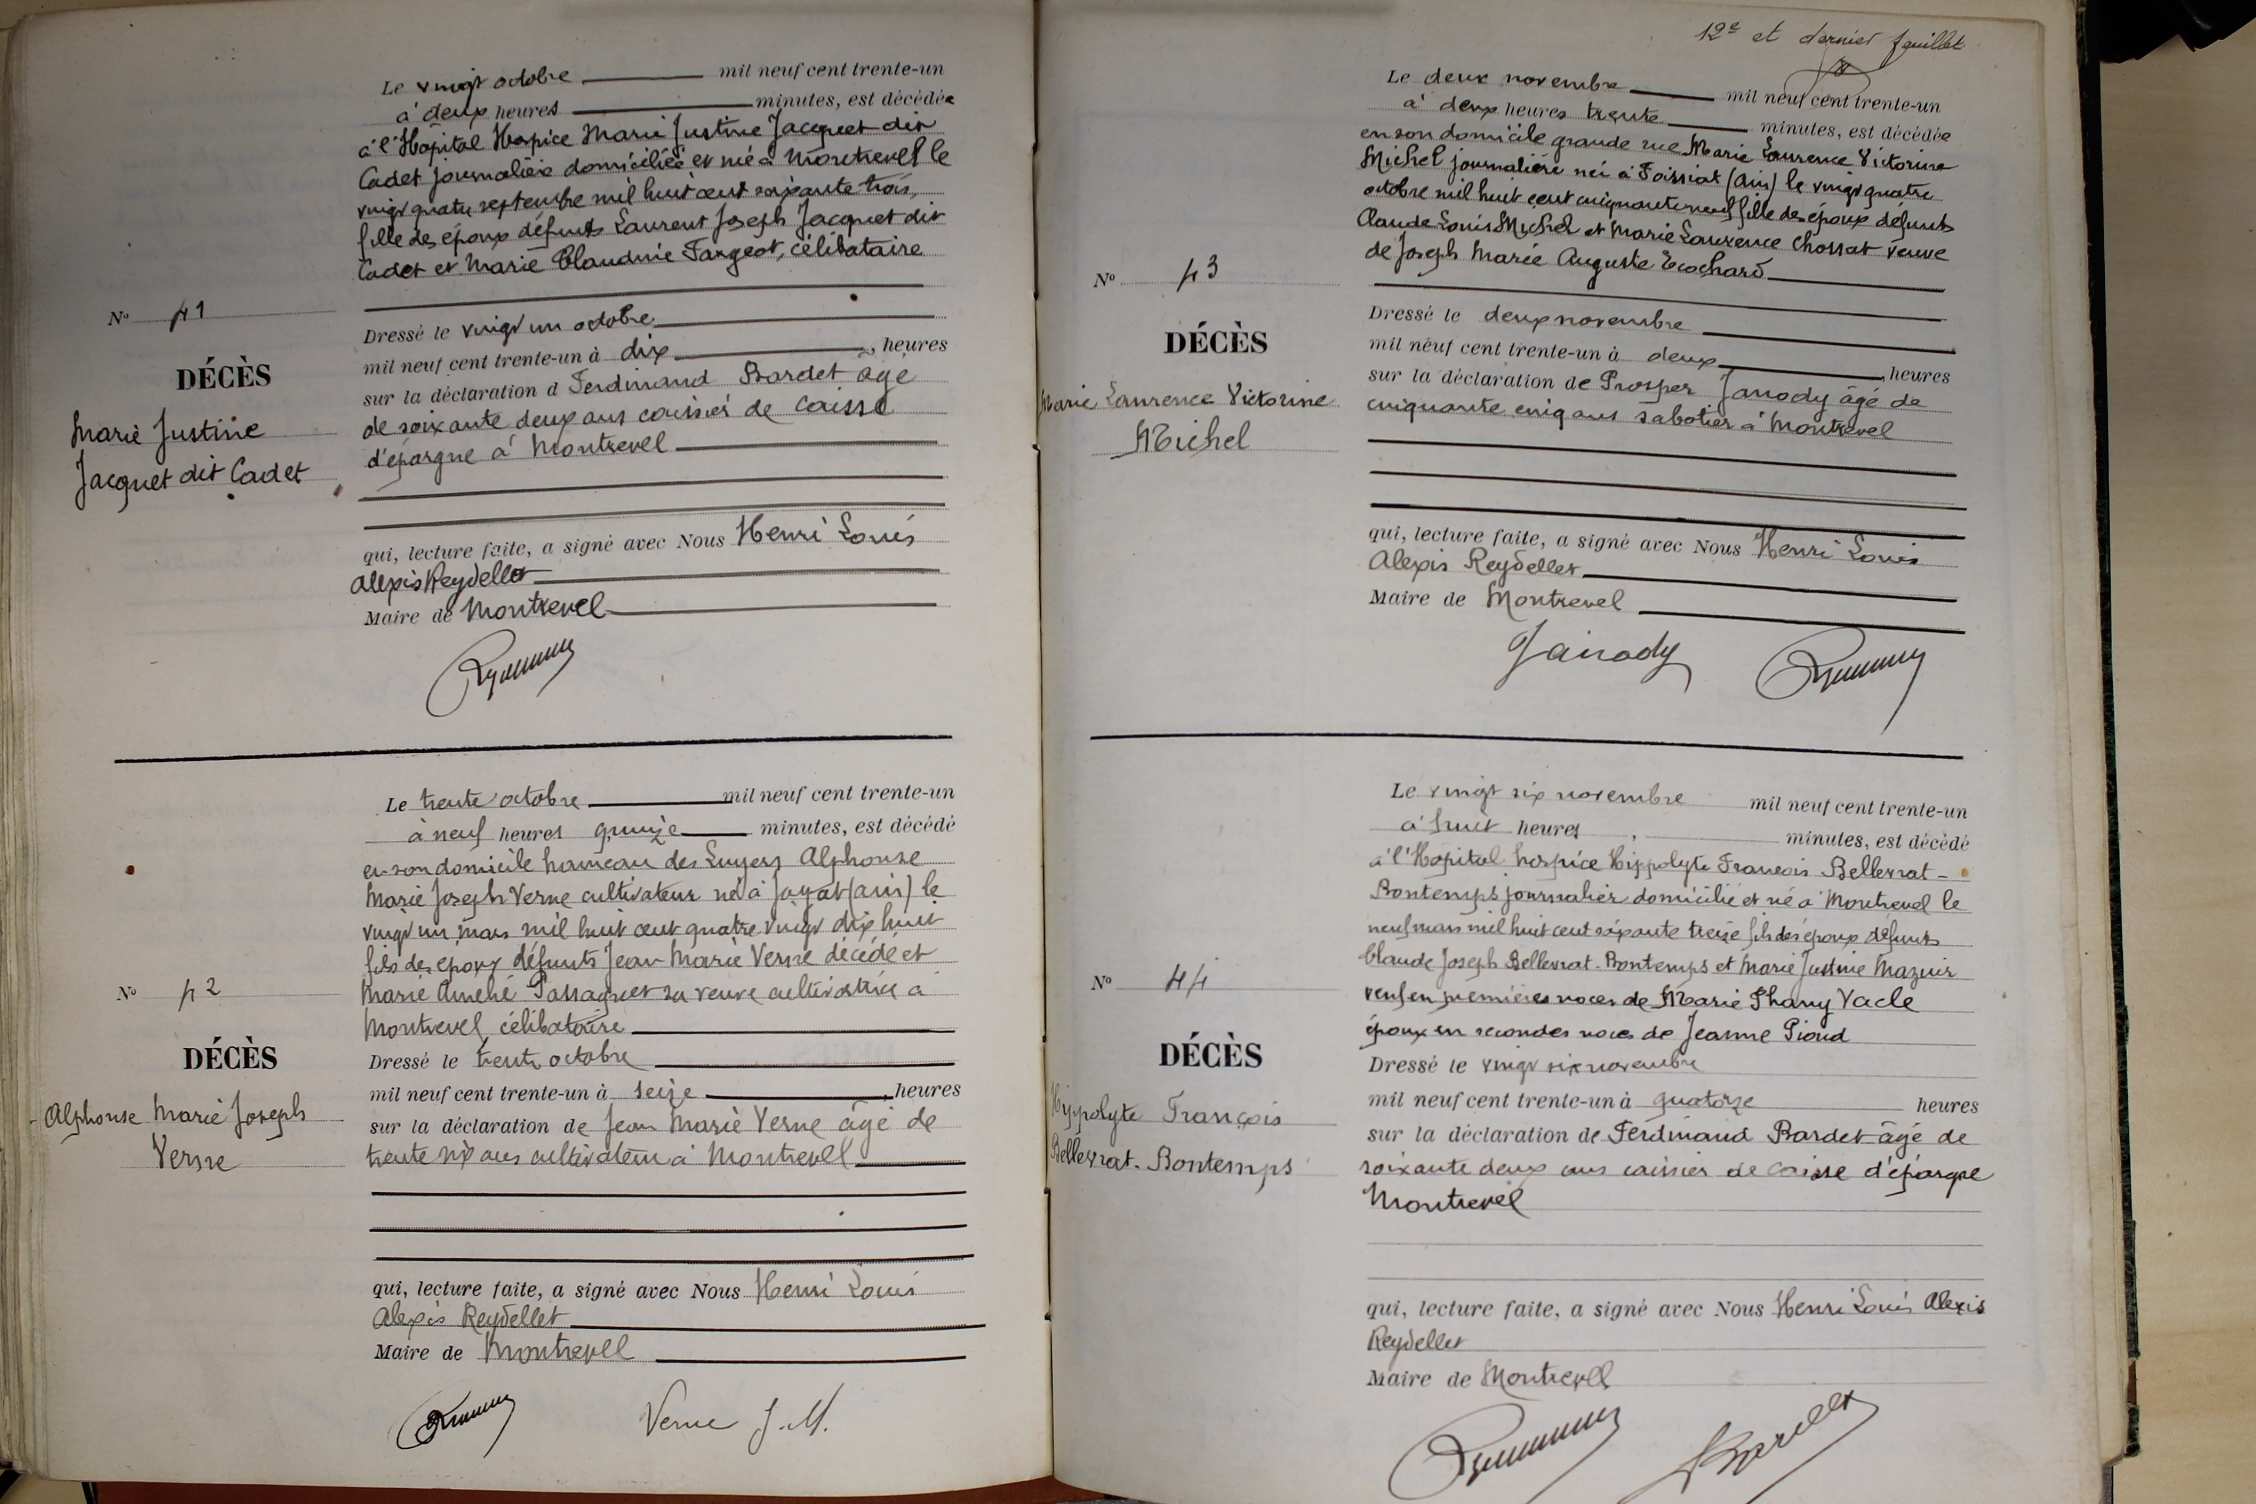 Le vingt octobre mil neuf cent trente-un
à deux heures minutes, est décédée
à l'Hôpital Hospice Marie Justine Jacquet dit
Cadet journalière domiciliée et née à Montrevel le
vingt quatre septembre mil huit cent soixante trois,
fille des époux défunts Laurent Joseph Jacquet dit
Cadet et Marie Claudine Fargeot, célibataire
No 41
DÉCÈS
Marie Justine
Jacquet dit Cadet
Dressé le vingt un octobre
mil neuf cent trente-un à dix, heures
sur la déclaration d Ferdinand Bardet âgé
de soixante deux ans caissier de caisse
d'épargne à Montrevel
qui, lecture faite, a signé avec Nous Henri Louis
Alexis Reydellet
Maire de Montrevel
Le trente octobre mil neuf cent trente-un
à neuf heures quinze minutes, est décédé
en son domicile hameau des Luyers Alphonse
Marie Joseph Verne cultivateur né à Jayat (ain) le
vingt un mars mil huit cent quatre vingt dix huit
fils des époux défunts Jean Marie Verne décédé et
Marie Amélie Passaquet sa veuve cultivatrice à
Montrevel, célibataire
No 42
DÉCÈS
Alphonse Marie Joseph
Verne
Dressé le trente octobre
mil neuf cent trente-un à seize, heures
sur la déclaration de Jean Marie Verne âgé de
trente six ans cultivateur à Montrevel
qui, lecture faite, a signé avec Nous Henri Louis
Alexis Reydellet
Maire de Montrevel
Verne J. M.
12e et dernier feuillet
Le deux novembre mil neuf cent trente-un
à deux heures trente minutes, est décédée
en son domicile grande rue Marie Laurence Victorine
Michel journalière née à Foissiat (ain) le vingt quatre
octobre mil huit cent cinquante neuf fille des époux défunts
Claude Louis Michel et Marie Laurence Chossat veuve
de Joseph Marie Auguste Ecochard
No 43
DÉCÈS
Marie Laurence Victorine
Michel
Dressé le deux novembre
mil neuf cent trente-un à deux, heures
sur la déclaration de Prosper Janody âgé de
cinquante cinq ans sabotier à Montrevel
qui, lecture faite, a signé avec Nous Henri Louis
Alexis Reydellet
Maire de Montrevel
Janody
Le vingt six novembre mil neuf cent trente-un
à huit heures minutes, est décédé
à l'Hôpital hospice Hippolyte François Bellevrat-
Bontemps journalier domicilié et né à Montrevel le
neuf mars mil huit cent soixante treize fils des époux défunts
Claude Joseph Bellevrat-Bontemps et Marie Justine Mazuir
veuf en premières noces de Marie Phany Vacle
époux en secondes noces de Jeanne Pioud
No 44
DÉCÈS
Hyppolyte François
Bellevrat-Bontemps
Dressé le vingt six novembre
mil neuf cent trente-un à quatorze heures
sur la déclaration de Ferdinand Bardet âgé de
soixante deux ans caissier de caisse d'épargne
Montrevel
qui, lecture faite, a signé avec Nous Henri Louis Alexis
Reydellet
Maire de Montrevel